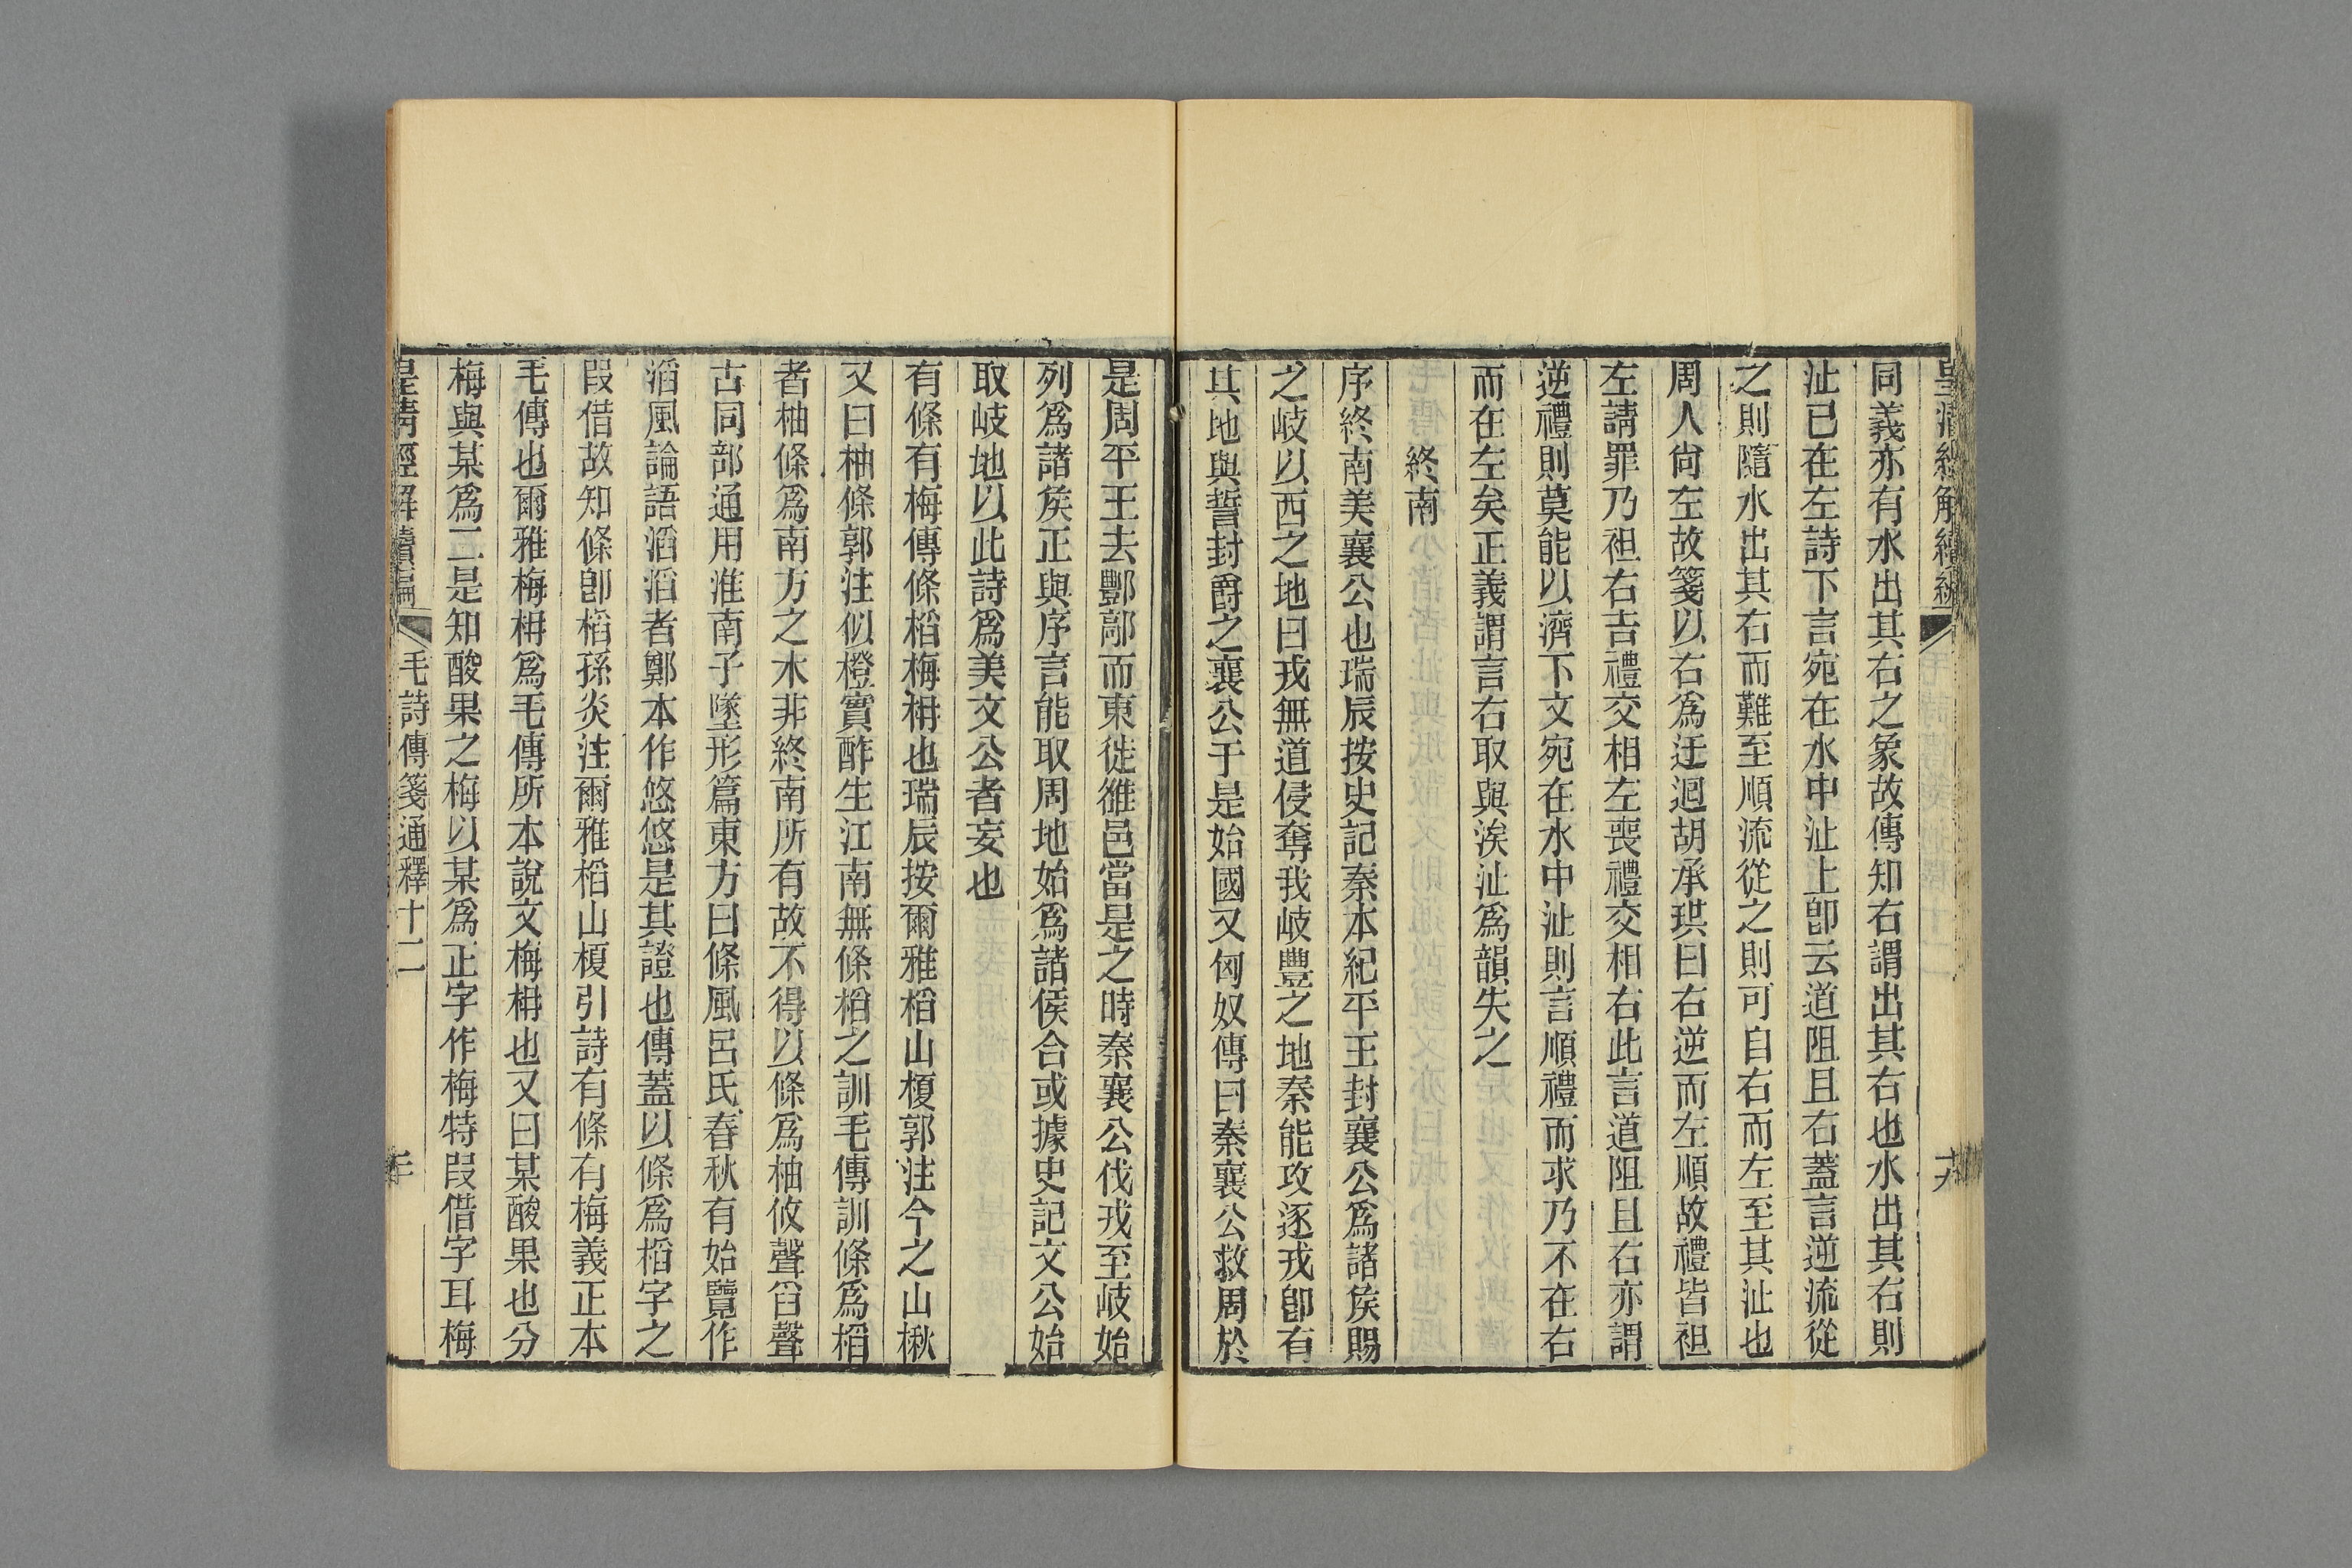 皇清經解續編
同義亦有水出其右之象故傳知右謂出其右也水出其右則
沚已在左詩下言宛在水中沚上卽云道阻且右蓋言逆流從
之則隨水出其右而難至順流從之則可自右而左至其沚也
周人尙左故箋以右爲迂迴胡承珙曰右逆而左順故禮皆袒
左請罪乃袒右吉禮交相左喪禮交相右此言道阻且右亦謂
逆禮則莫能以濟下文宛在水中沚則言順禮而求乃不在右
而在左矣正義謂言右取與涘沚爲韻失之
終南
序終南美襄公也瑞辰按史記秦本紀平王封襄公爲諸矦賜
之岐以西之地曰戎無道侵奪我岐豐之地秦能攻逐戎卽有
其地與誓封爵之襄公于是始國又匈奴傳曰秦襄公救周於
是周平王去酆鄗而東徙雒邑當是之時秦襄公伐戎至岐始
列爲諸矦正與序言能取周地始爲諸侯合或據史記文公始
取岐地以此詩爲美文公者妄也
有條有梅傳條稻梅柟也瑞辰按爾雅稻山榎郭注今之山楸
又曰柚條郭注似橙實酢生江南無條稻之訓毛傳訓條爲稻
者柚條爲南方之木非終南所有故不得以條爲柚攸聲舀聲
古同部通用淮南子墬形篇東方曰條風呂氏春秋有始覽作
滔風論語滔滔者鄭本作悠悠是其證也傳蓋以條爲稻字之
叚借故知條卽槄孫炎注爾雅槄山榎引詩有條有梅義正本
毛傳也爾雅梅柟爲毛傳所本說文梅柟也又曰某酸果也分
梅與某爲二是知酸果之梅以某爲正字作梅特叚借字耳梅
皇清經解續編
毛詩傳箋通釋十二